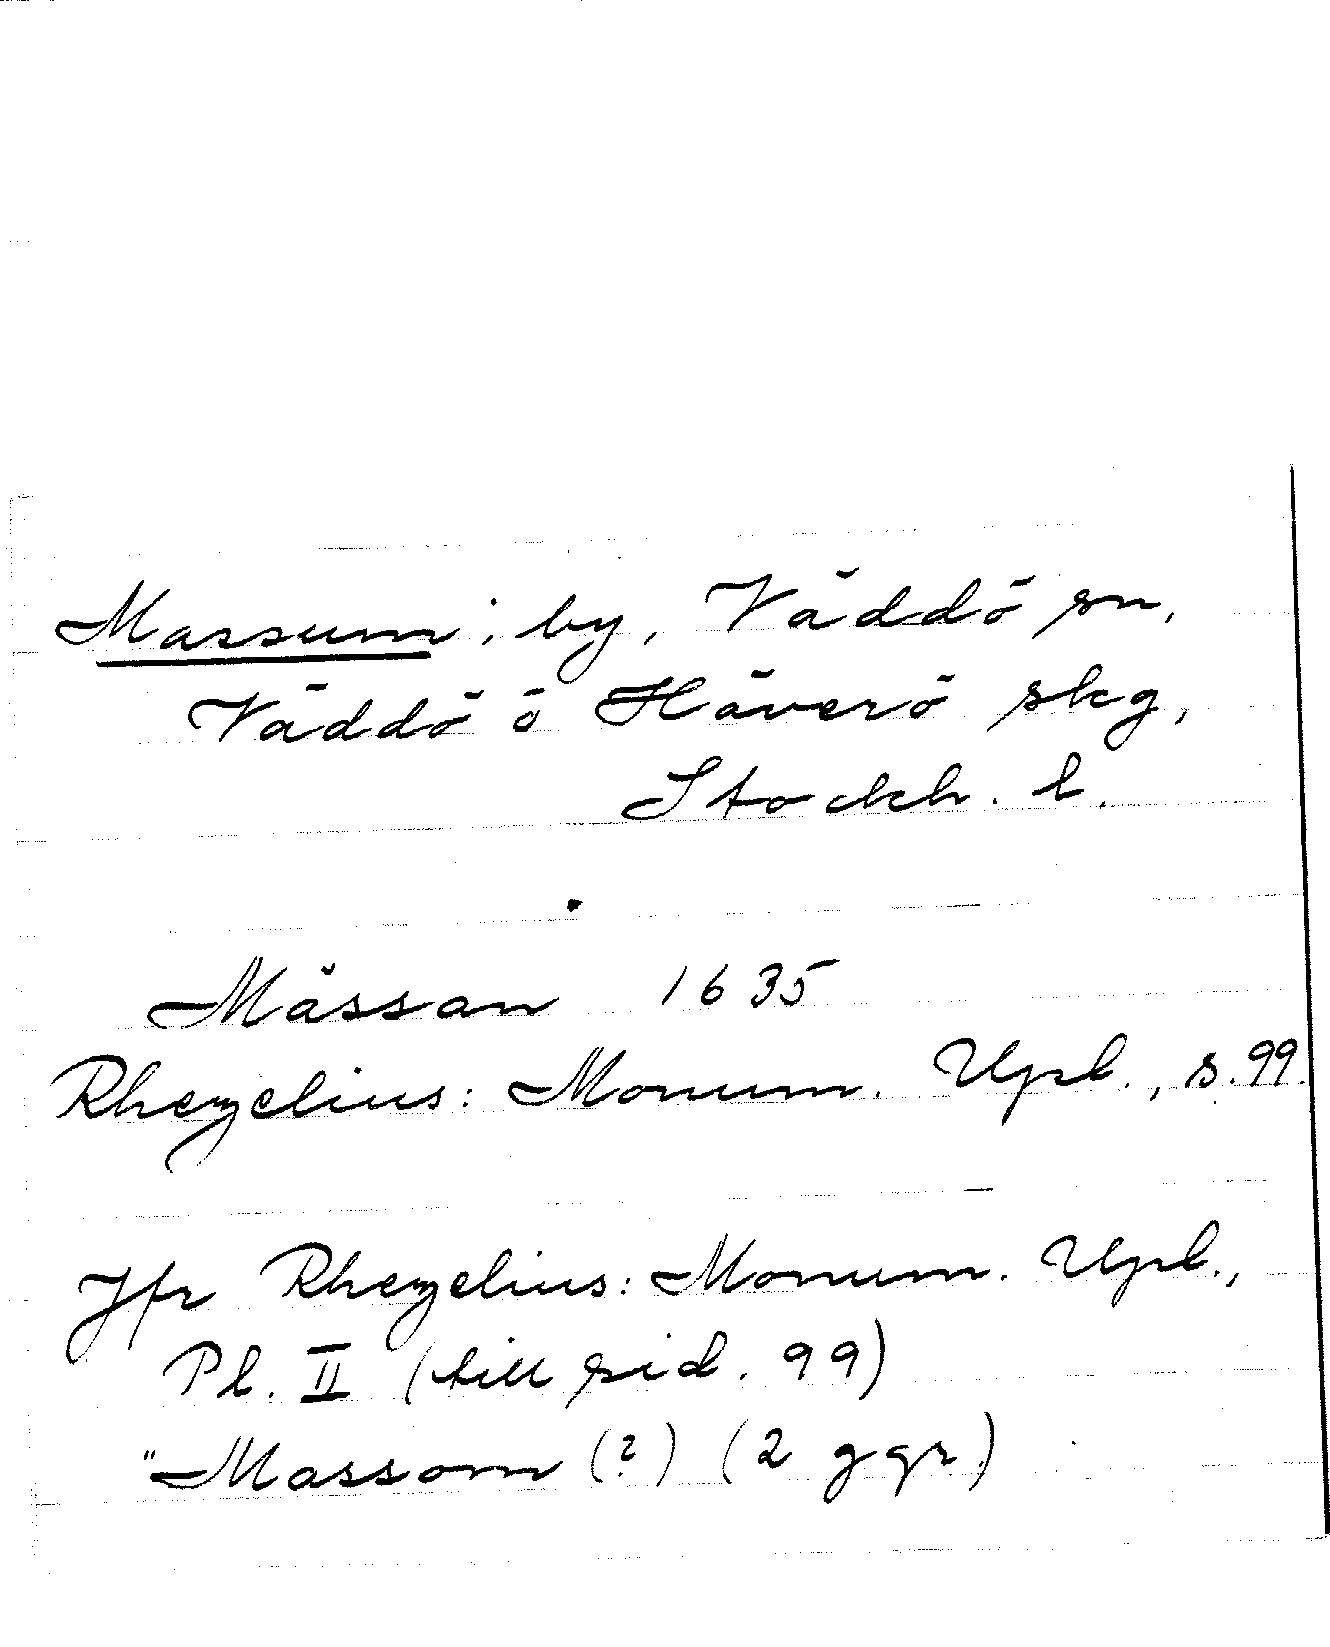 Massum, by, Väddö sn,
Väddö o Häverö skg,
Stockh. l.
Mässan 1635
Rhezelius: Monum. Upl., s. 99.
Jfr Rhezelius: Monum. Upl.,
Pl. II (till sid. 99)
"Massom (?) (2 ggr)